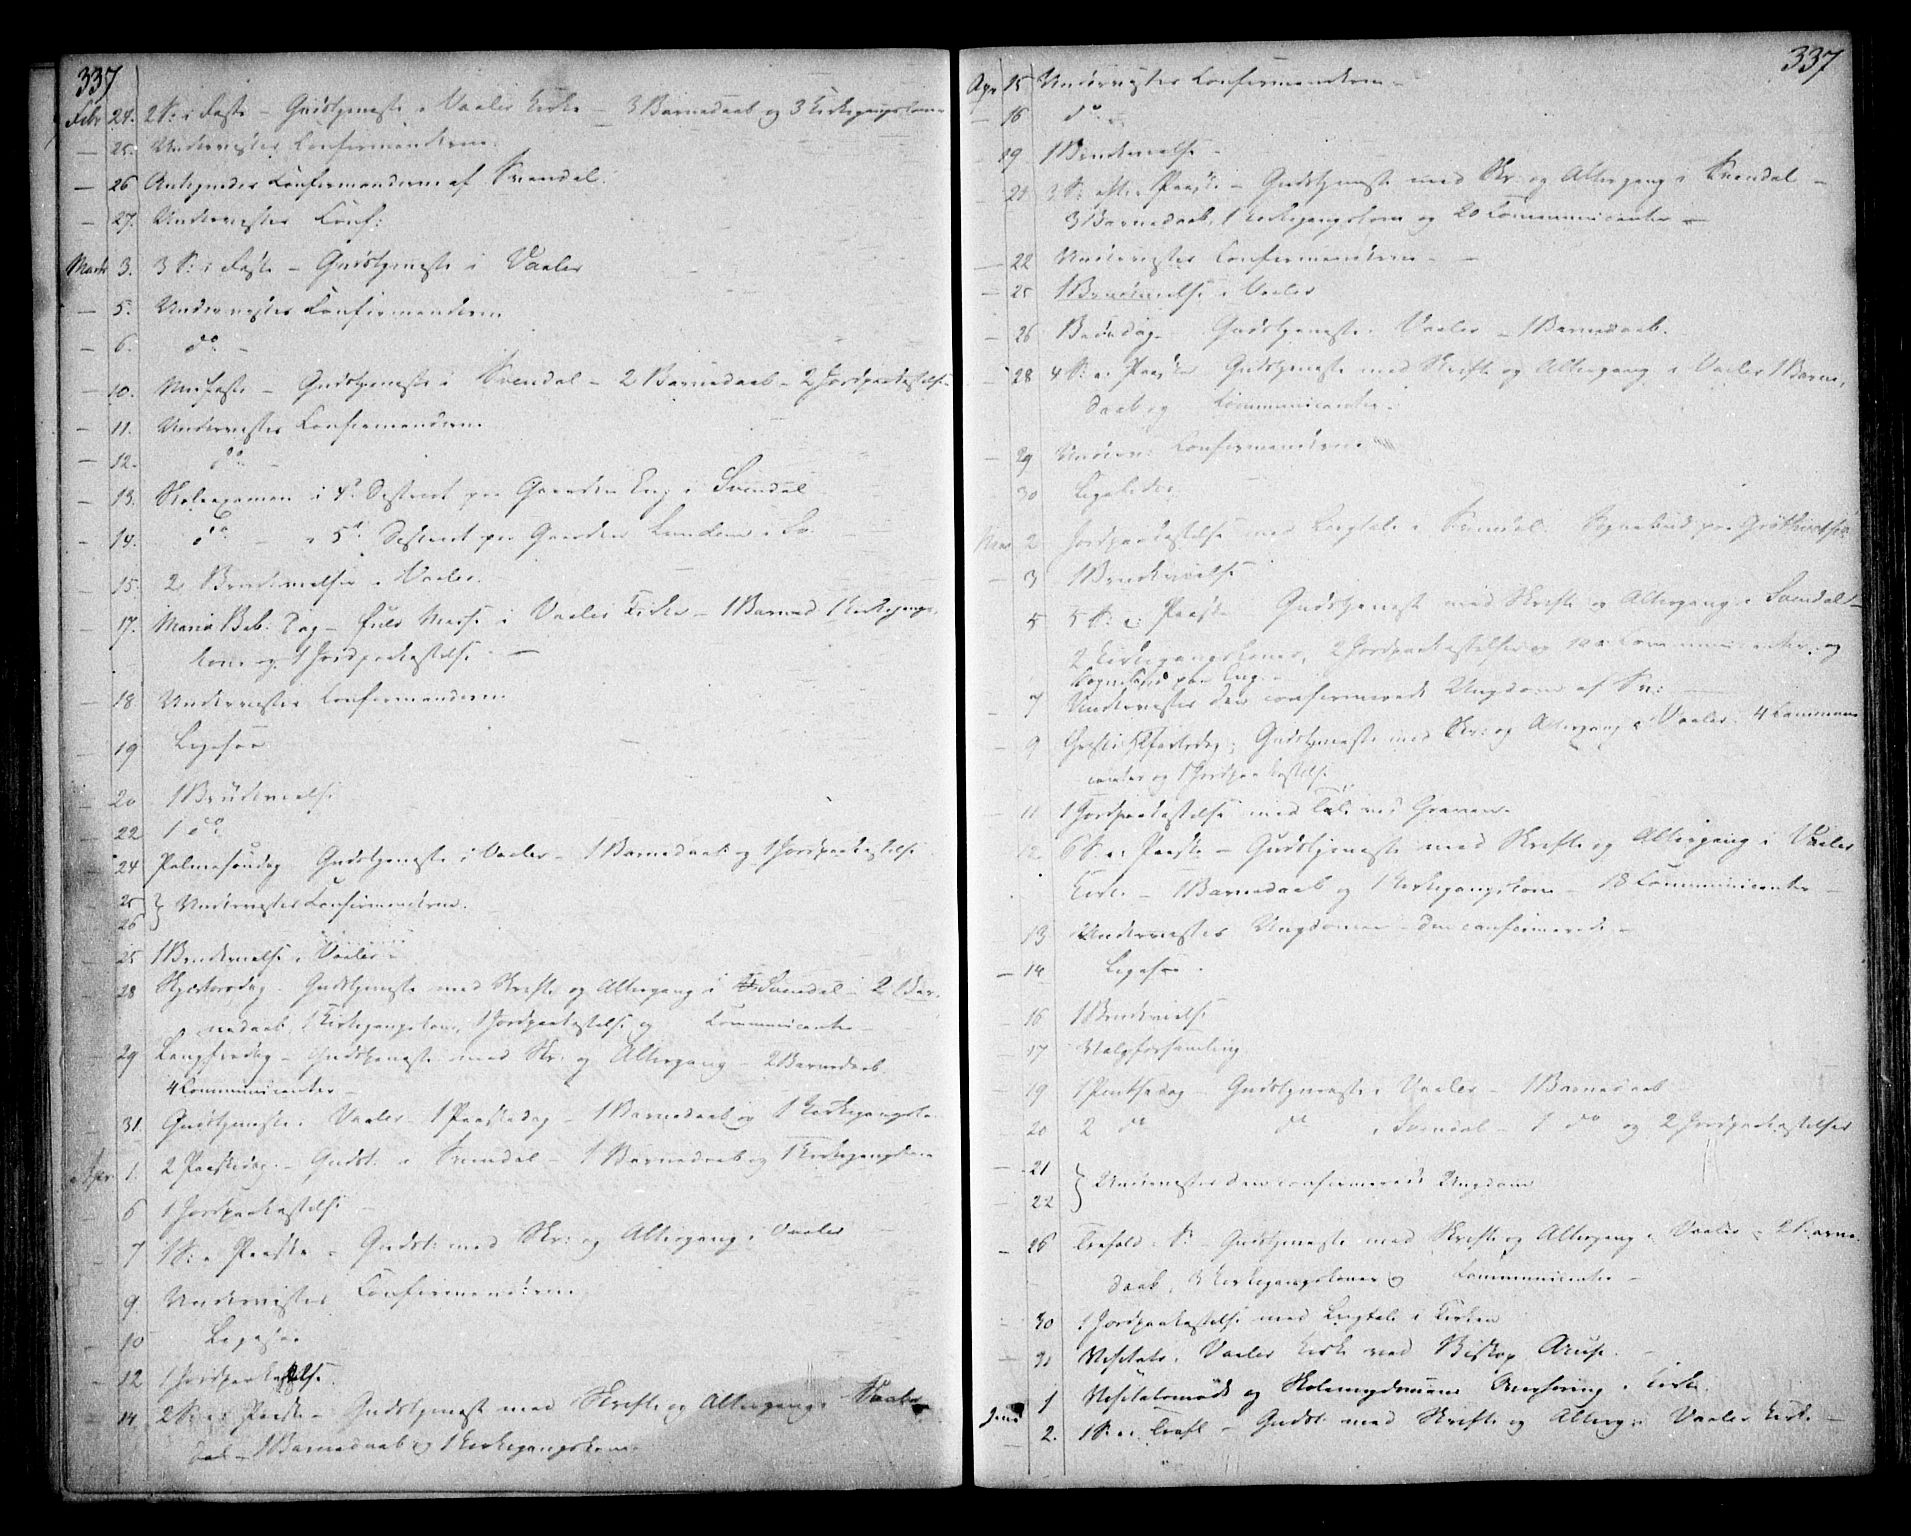 337
Febr 24. 2 S: i Faste – Gudstjeneste i Vaaler Kirke – 3 Barnedaab og 3 Kirkegangskoner
– 25. Underviste Confirmanderne.
– 26 Antegnedes Confirmanderne af Svendal.
– 27. Underviste Conf:
Marts 3. 3 S: i Faste – Gudstjeneste i Vaaler
– 5. Underviste Confirmanderne
– 6. do –
– 10. Midfaste – Gudstjeneste i Svendal – 2 Barnedaab – 2 Jordpaakastelse
– 11. Underviste Confirmanderne
– 12. do –
– 13. Skoleexamen i 4. District paa Gaarden Eng i Svendal
– 14. do – i 5t District paa Gaarden i Sv
– 15. 2 Brudevielser i Vaaler.
– 17. Maria Beb: Dag – Fuld Messe i Vaaler Kirke – 1 Barned. 1 Kirkegangs,
kone og 1 Jordpaakastelse –
– 18 Underviste Confirmanderne
19
– 20 1 Brudevielse
22 1 do
24 Palmesøndag Gudstjeneste i Vaaler – 1 Barnedaab og 1 Jordpaakastelse
25 } Underviste Confirmanderne.
26
25 1 Brudevielse i Vaaler –
28 Skjertorsdag – Gudstjeneste med Skrifte og Altergang i Svendal – 2 Bar,
nedaab, 1 Kirkegangskone, 1 Jordpaakastelse og Communicanter –
29 Langfredag – Gudstjeneste med Skr: og Altergang – 2 Barnedaab.
4 Communicanter –
31. Gudstjeneste i Vaaler – 1 Paaskedag – 1 Barnedaab og 1 Kirkegangsko
Apr. 1. 2 Paaskedag. – Gudst: i Svendal – 1 Barnedaab og 1 Kirkegangskone
6 1 Jordpaakastelse –
– 7 1 S: e Paaske – Gudst: med Skr: og Altergang i Vaaler
– 9. Underviste Confirmanderne
– 10
– 12 1 Jordpaakastelse.
14. 2 S: e: Paaske – Gudstjeneste med Skrifte og Altergang i
dal – 1 Barnedaab og 1 Kirkegangskone
337
Apr 15 Underviste Confirmanderne –
– 16 do
– 19 1 Brudevielse –
– 21 3 S: efter Paaske – Gudstjeneste med Skr: og Altergang i Svendal –
3 Barnedaab, 1 Kirkegangskone og 20 Communicanter –
– 22 Underviste Confirmanderne – –
– 25 1 Brudevielse i Vaaler
26 Bededag – Gudstjeneste i Vaaler – 1 Barnedaab.
– 28 4 S: e: Paaske Gudstjeneste med Skrifte og Altergang i Vaaler 1 Barne,
daab og Communicanter –
– 29 Underv: Confirmanderne
30
2 Jordpaakastelse med Liigtale i Svendal. paa
– 3 1 Brudevielse
5 5 S: e: Paaske Gudstjeneste med Skrifte og Altergang i Svendal –
2 Kirkegangskoner, 2 Jordpaakastelser og Communicanter og
paa Eng –
– 7 Underviste den confirmerede Ungdom af Sv: –
– 9 Christi Himmelfartsdag; Gudstjeneste med Skr: og Altergang i Vaaler 4 Communi
canter og 1 Jordpaakastelse
– 11 1 Jordpaakastelse med Tale ved Graven –
12 6 S: e: Paaske – Gudstjeneste med Skrifte og Altergang i Vaaler
Kirke – 1 Barnedaab og 1 Kirkegangskone – 18 Communicanter –
– 13 Underviste Ungdommen – den confirmerede –
– 14
– 16 1 Brudevielse
– 17 Valgforsamling
– 19 1 Pintsedag – Gudstjeneste i Vaaler – 1 Barnedaab
– 20 2 do do i Svendal – 1 do og 2 Jordpaakastelser
– 21 } Underviste den confirmerede Ungdom
– 22
– 26 Trefold: S: – Gudstjeneste med Skrifte og Altergang i Vaaler – 2 Barne,
– daab, 3 Kirkegangskoner og Communicanter –
30 1 Jordpaakastelse med Liigtale i Kirken
– 31 Visitats i Vaaler Kirke ved Biskop Arup. –
Juni 1 Visitatsmøde og i Kirke.
– 2. 1 S: e: Trefl – Gudst: med Skrifte og Alterg: i Vaaler Kirke –